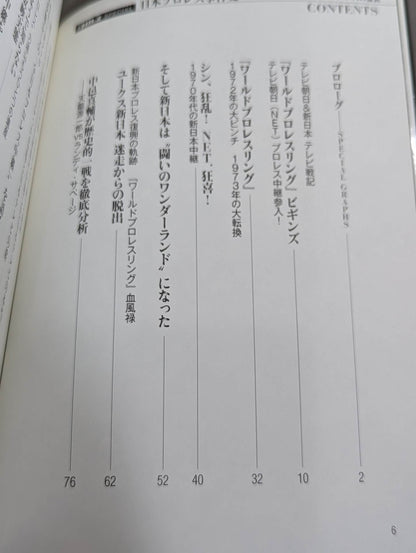 日本プロレス事件史
CONTENTS
プロローグ SPECIAL GRAPHS 2
テレビ朝日&新日本 テレビ戦記
『ワールドプロレスリング』ビギンズ 10
テレビ朝日(NET)プロレス中継参入!
『ワールドプロレスリング』 32
1972年の大ピンチ 1973年の大転換
シン、狂乱! NET、狂喜! 40
1970年代の新日本中継
そして新日本は“闘いのワンダーランド”になった 52
新日本プロレス復興の軌跡 『ワールドプロレスリング』血風禄
ユークス新日本 迷走からの脱出 62
中邑真輔が歴史的一戦を徹底分析 76
天龍源一郎vsランディ・サベージ
6